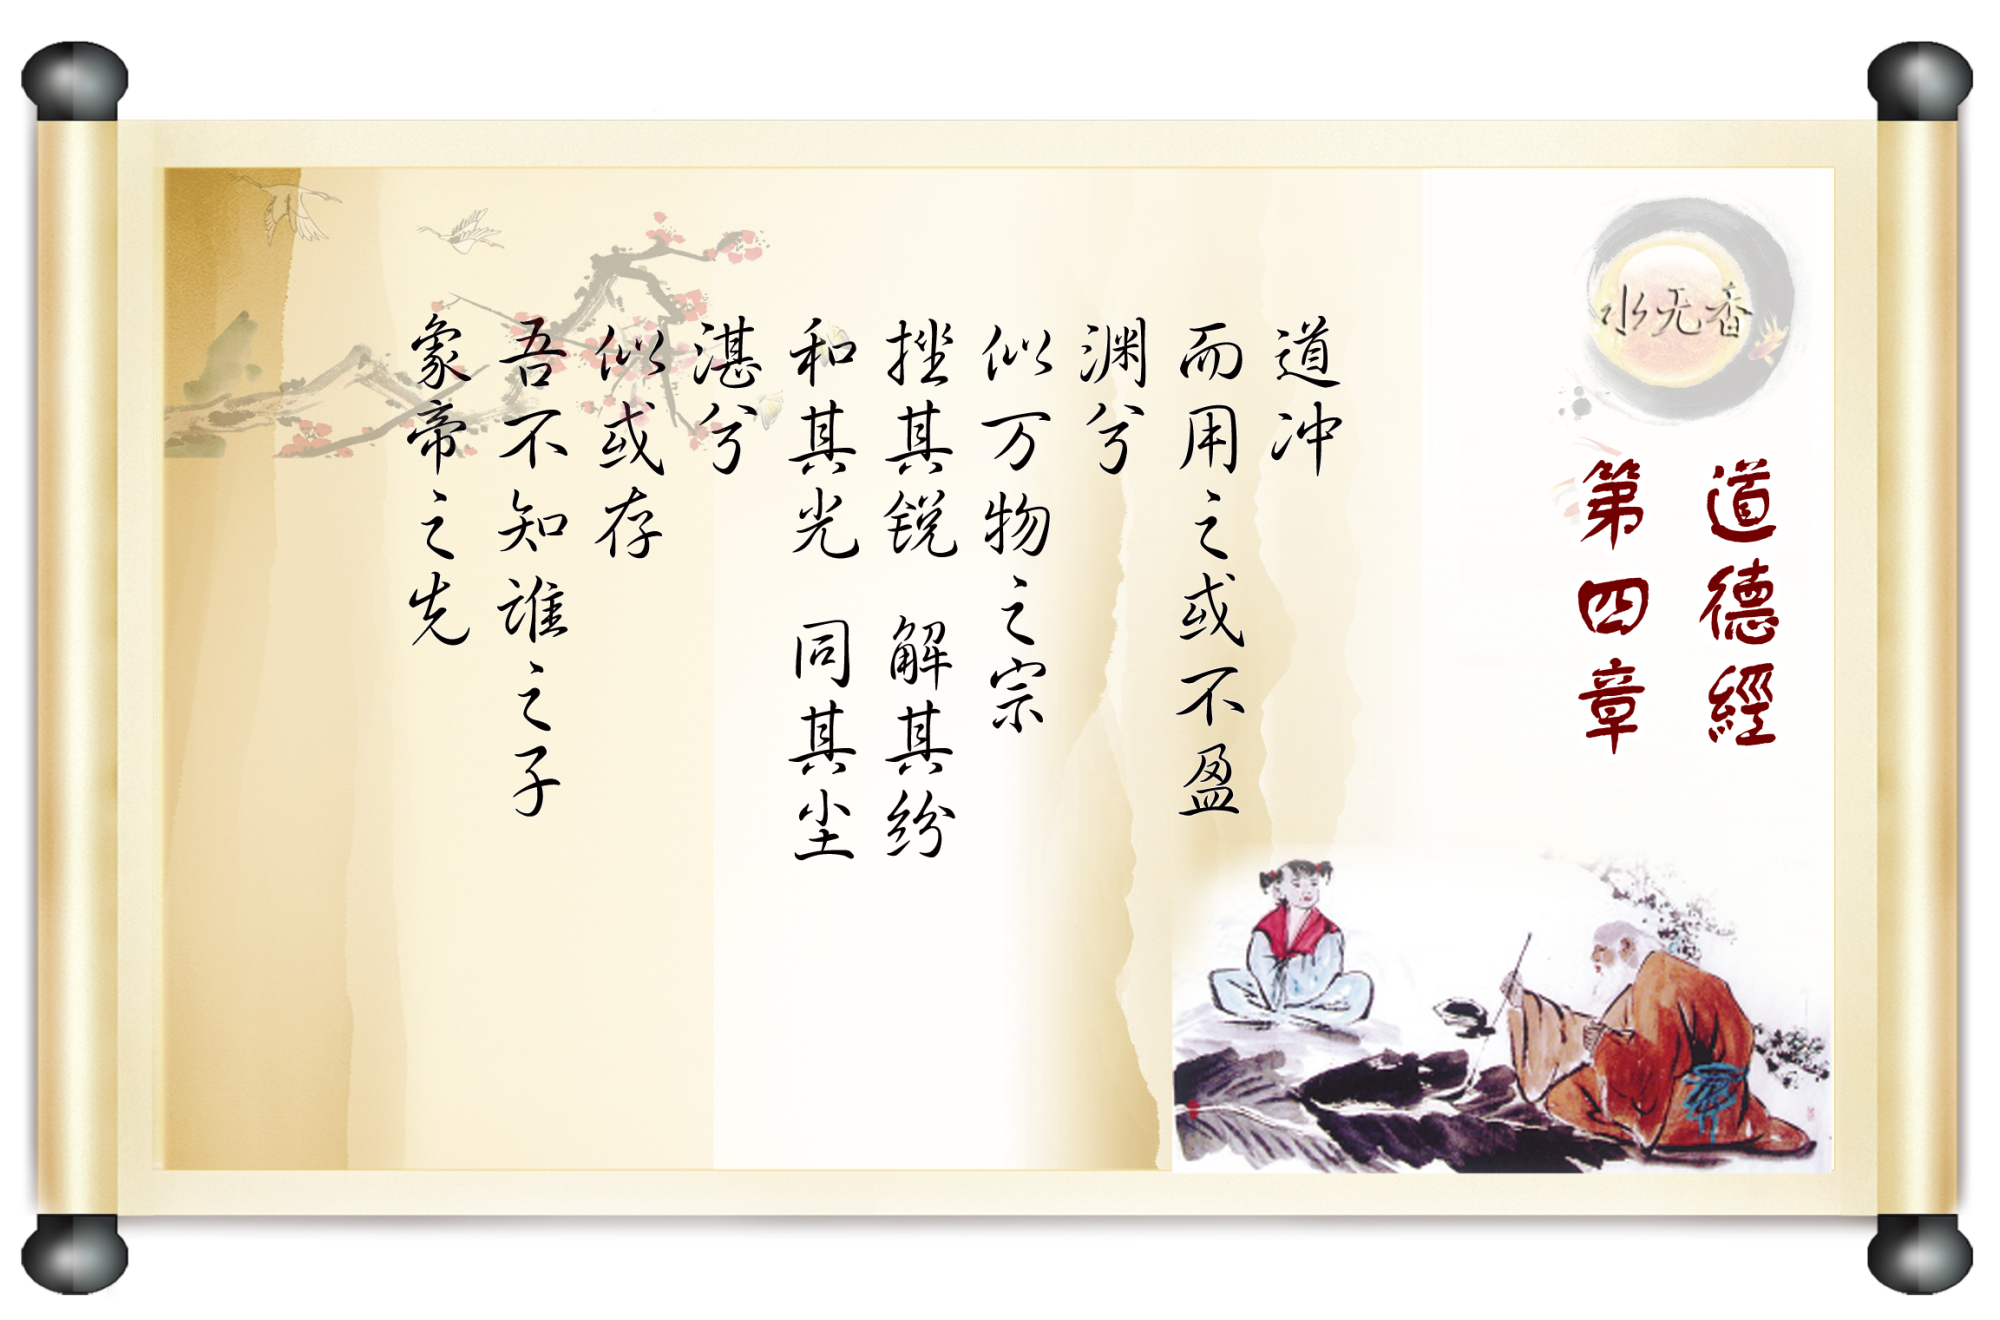 水无香
道德經
第四章
道冲
而用之或不盈
渊兮
似万物之宗
挫其锐 解其纷
和其光 同其尘
湛兮
似或存
吾不知谁之子
象帝之先